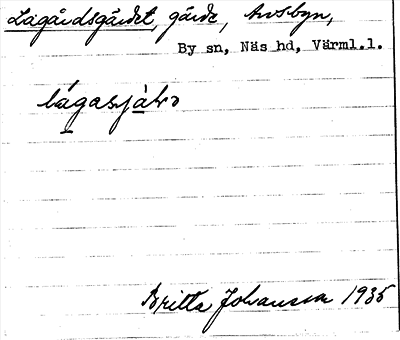 Lagårdsgärdet, gärde, Avsbyn,
By sn, Näs hd, Värml.l.
lágasjàłɔ
Britta Johansson 1935